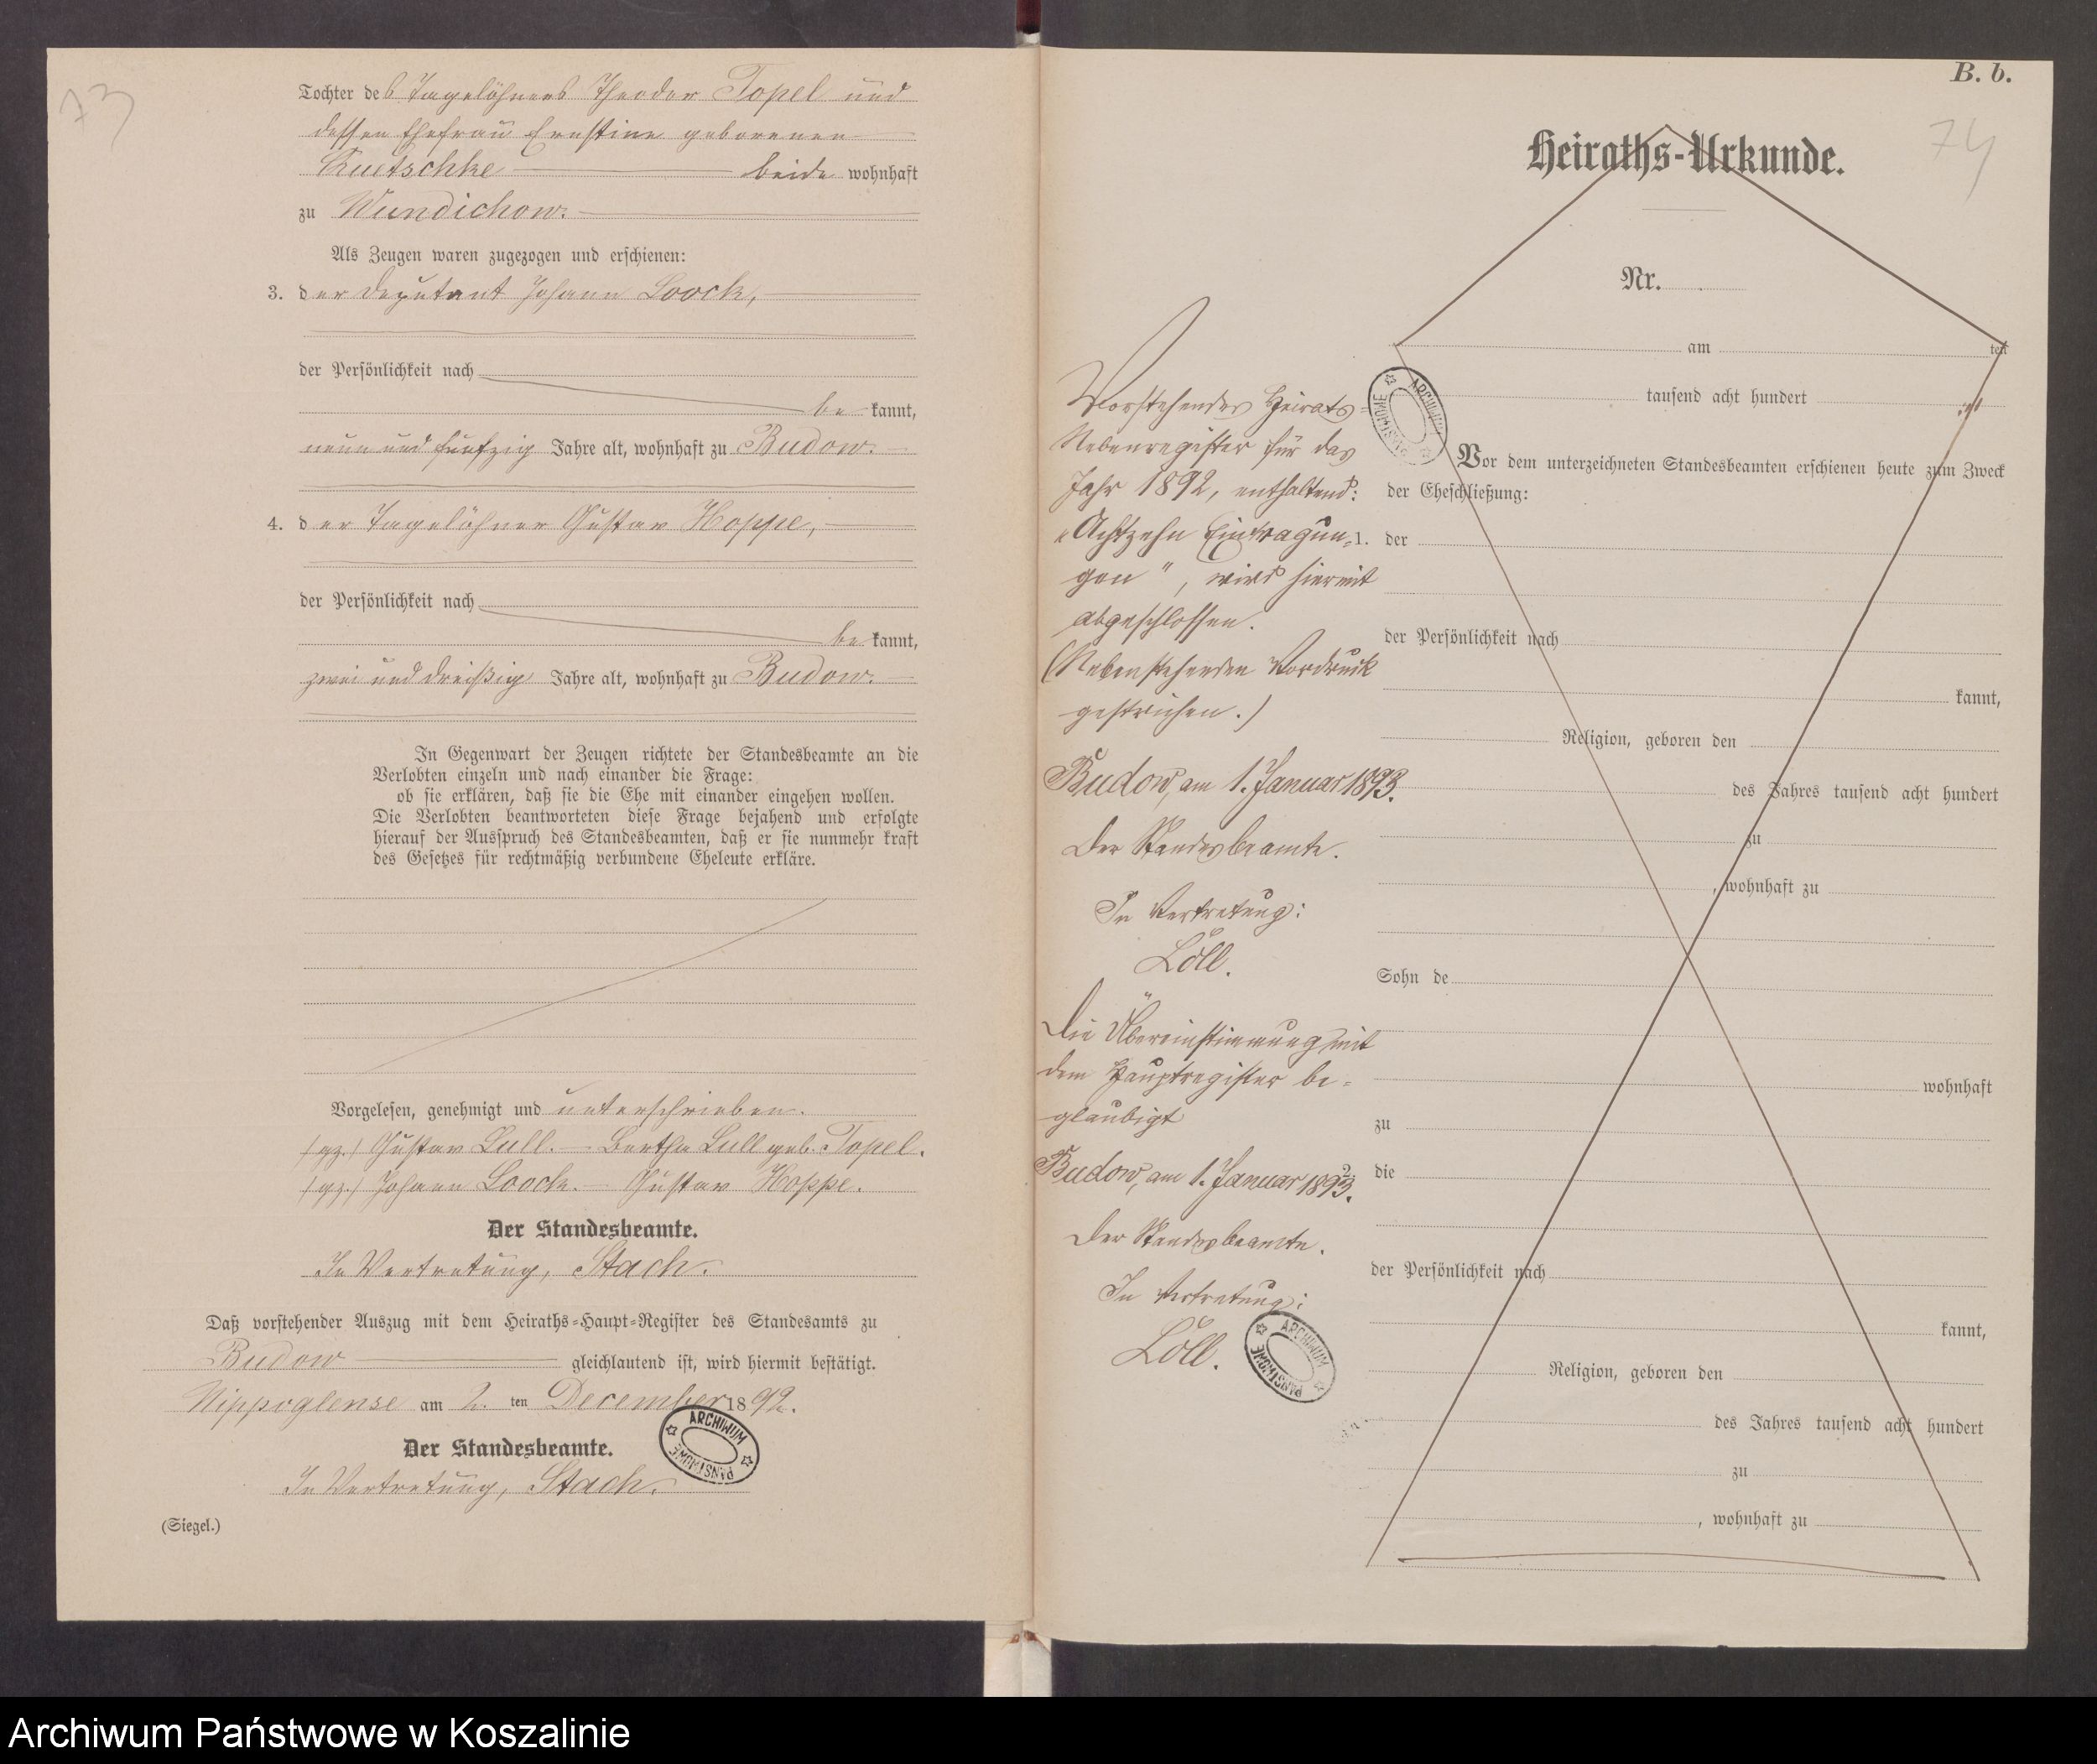 73
Tochter des Tagelöhners Theodor Topel und
dessen Ehefrau Ernstine geborenen
Kuetschke beide wohnhaft
zu Wundichow.
Als Zeugen waren zugezogen und erschienen:
3. der Deputant Johann Loock,
der Persönlichkeit nach
be kannt,
neun und fünfzig Jahre alt, wohnhaft zu Budow.
4. der Tagelöhner Gustav Hoppe,
der Persönlichkeit nach
be kannt,
zwei und dreißig Jahre alt, wohnhaft zu Budow.
In Gegenwart der Zeugen richtete der Standesbeamte an die
Verlobten einzeln und nach einander die Frage:
ob sie erklären, daß sie die Ehe mit einander eingehen wollen.
Die Verlobten beantworteten diese Frage bejahend und erfolgte
hierauf der Ausspruch des Standesbeamten, daß er sie nunmehr kraft
des Gesetzes für rechtmäßig verbundene Eheleute erkläre.
Vorgelesen, genehmigt und unterschrieben.
(gz.) Gustav Lull. – Bertha Lull geb. Topel.
(gz.) Johann Loock. – Gustav Hoppe.
Der Standesbeamte.
In Vertretung, Stach.
Daß vorstehender Auszug mit dem Heiraths-Haupt-Register des Standesamts zu
Budow gleichlautend ist, wird hiermit bestätigt.
Nippoglense am 2. ten December 1892.
Der Standesbeamte.
In Vertretung, Stach.
(Siegel.)
ARCHIWUM PAŃSTWOWE
B. b.
74
Heiraths-Urkunde.
Nr.
am ten
tausend acht hundert
Vor dem unterzeichneten Standesbeamten erschienen heute zum Zweck
der Eheschließung:
1. der
der Persönlichkeit nach
kannt,
Religion, geboren den
des Jahres tausend acht hundert
zu
, wohnhaft zu
Sohn de
wohnhaft
zu
die
der Persönlichkeit nach
kannt,
Religion, geboren den
des Jahres tausend acht hundert
zu
, wohnhaft zu
Vorstehendes Heirats-
Nebenregister für das
Jahr 1892, enthaltend:
„Achtzehn Eintragun-
gen", wird hiermit
abgeschlossen.
(Nebenstehenden Vordruck
gestrichen.)
Budow, am 1. Januar 1893.
Der Standesbeamte.
In Vertretung:
Löll.
Die Übereinstimmung mit
dem Hauptregister be-
glaubigt
Budow, am 1. Januar 1893.
Der Standesbeamte.
In Vertretung:
Löll.
ARCHIWUM PAŃSTWOWE
ARCHIWUM PAŃSTWOWE
Archiwum Państwowe w Koszalinie